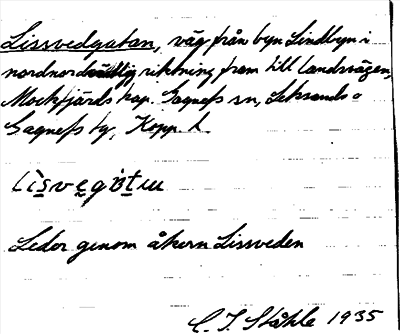 Lissvedgatan, väg från byn Lindbyn i
nordnordostlig riktning fram till landsvägen,
Mockfjärds kap. Gagnefs sn, Leksands o
Gagnefs tg, Kopp. l.
Leder genom åkern Lissveden
C. I. Ståhle 1935